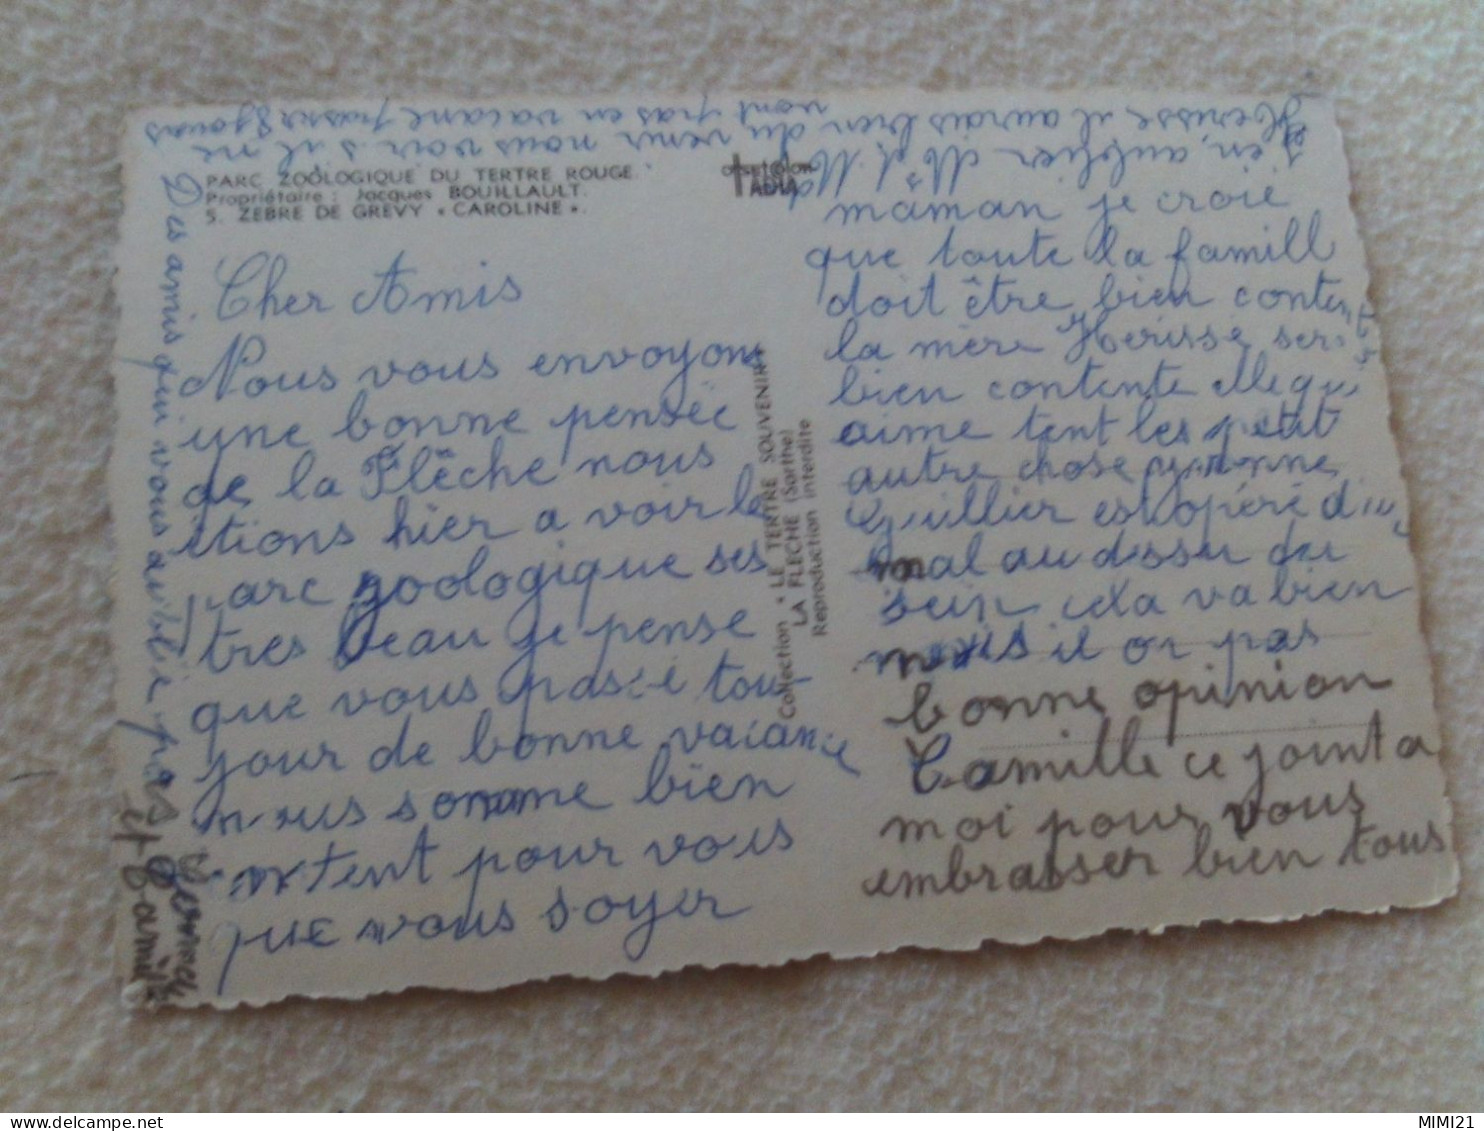 PARC ZOOLOGIQUE DU TERTRE ROUGE.
Propriétaire : Jacques BOUILLAULT.
5. ZEBRE DE GREVY « CAROLINE ».
Cher Amis
Nous vous envoyons
une bonne pensée
de la Flêche nous
étions hier a voir le
parc zoologique ses
tres beau je pense
que vous passé tou-
jour de bonne vacance
nous somme bien
content pour vous
que vous soyer
Collection « LE TERTRE SOUVENIR »
LA FLECHE (Sarthe)
Reproduction interdite
maman je croie
que toute la famill
doit être bien contente
la mère Herisse sera
bien contente elle qui
aime tent les petit
autre chose
Guillier est opéré d'un
mal au dessu du
sein cela va bien
mais il on pas
bonne opinion
Camille ce joint a
moi pour vous
embrasser bien tous
et Camille
Des amis qui vous oublie pas
Herisse, il aurais bien du venir nous voir s'il ne
vont pas en vacance passer 8 jours
MIMI21